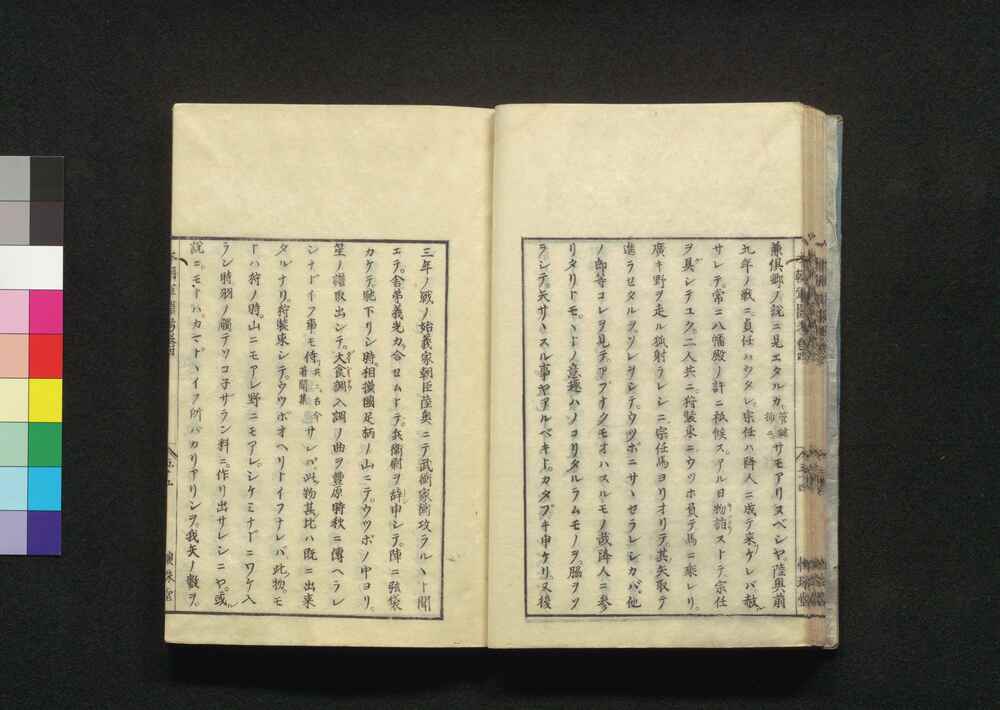 兼倶卿ノ説ニ見エタルカ。サモアリヌベシヤ。陸奥前
九年ノ戦ニ貞任ハウタレ。宗任ハ降人ニ成テ来ケレバ赦
サレテ。常ニ八幡殿ノ許ニ祇候ス。アル日物詣ストテ宗任
ヲ具シテユク。二人共ニ狩装束ニウツホ負テ馬ニ乗レリ。
廣キ野ヲ走ル狐射ラレシニ宗任馬ヨリオリテ。其矢取テ
進ラセタルヲソレヲシテ。ウツボニサヽセラレシカバ。他
ノ郎等コレヲ見テ。アブオクモオハスルモノ哉降人ニ参
リタリトモ。ヽトノ意趣ハノコリタルラムモノヲ。脇ヲソ
ラシテ。矢サヽスル事ヤアルベキト。カタブキ申ケリ。又後
三年ノ戦ノ始義家朝臣陸奥ニテ武衡家衡攻ラルヽト聞
エテ。舎弟義光力合セムトテ。兵衛尉ヲ辞申シテ。陣ニ弦袋
カケテ。馳下リシ時。相摸國足柄ノ山ニテ。ウツボノ中ヨリ。
笙ノ譜取出シテ。大食調入調ノ曲ヲ豊原時秋ニ傳ヘラレ
シナドイフ事モ侍
共ニ古今
著聞集
サレバ此物其比ハ既ニ出来
タルナリ。狩装束シテ。ウツボオヘリトイフナレバ。此物。モ
トハ狩ノ時。山ニモアレ野ニモアレ。シケミナドニワケ入
ラン時。羽ノ觸テソコ子サラン料ニ。作リ出サレシニヤ。或
説ニ。モトハ。カマドヽイフ所バカリアリシヲ。我矢ノ数ヲ。